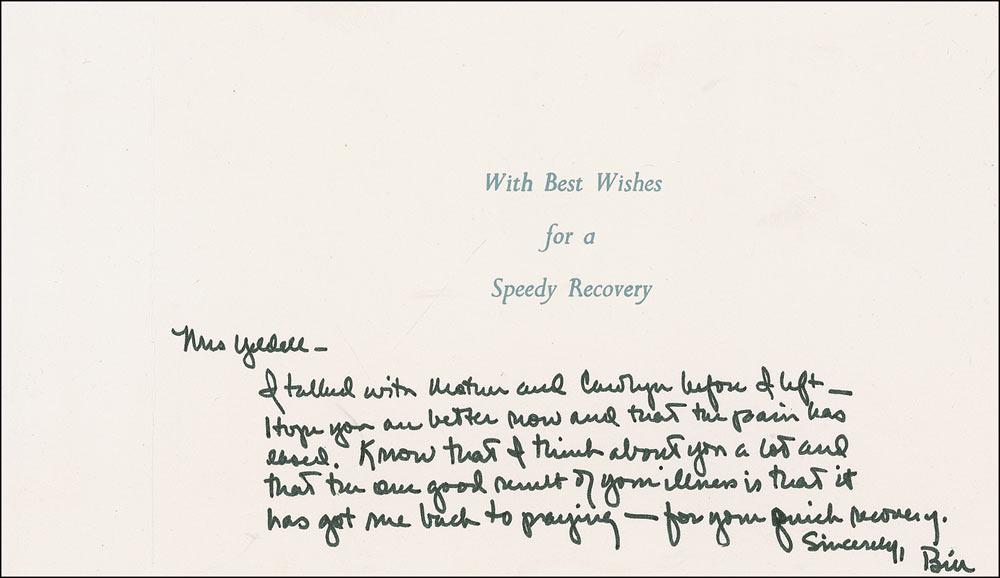 With Best Wishes
for a
Speedy Recovery
Mrs Yeldell –
I talked with Mother and Carolyn before I left –
Hope you are better now and that the pain has
eased. Know that I think about you a lot and
that the one good result of your illness is that it
has got me back to praying — for your quick recovery.
Sincerely,
Bill